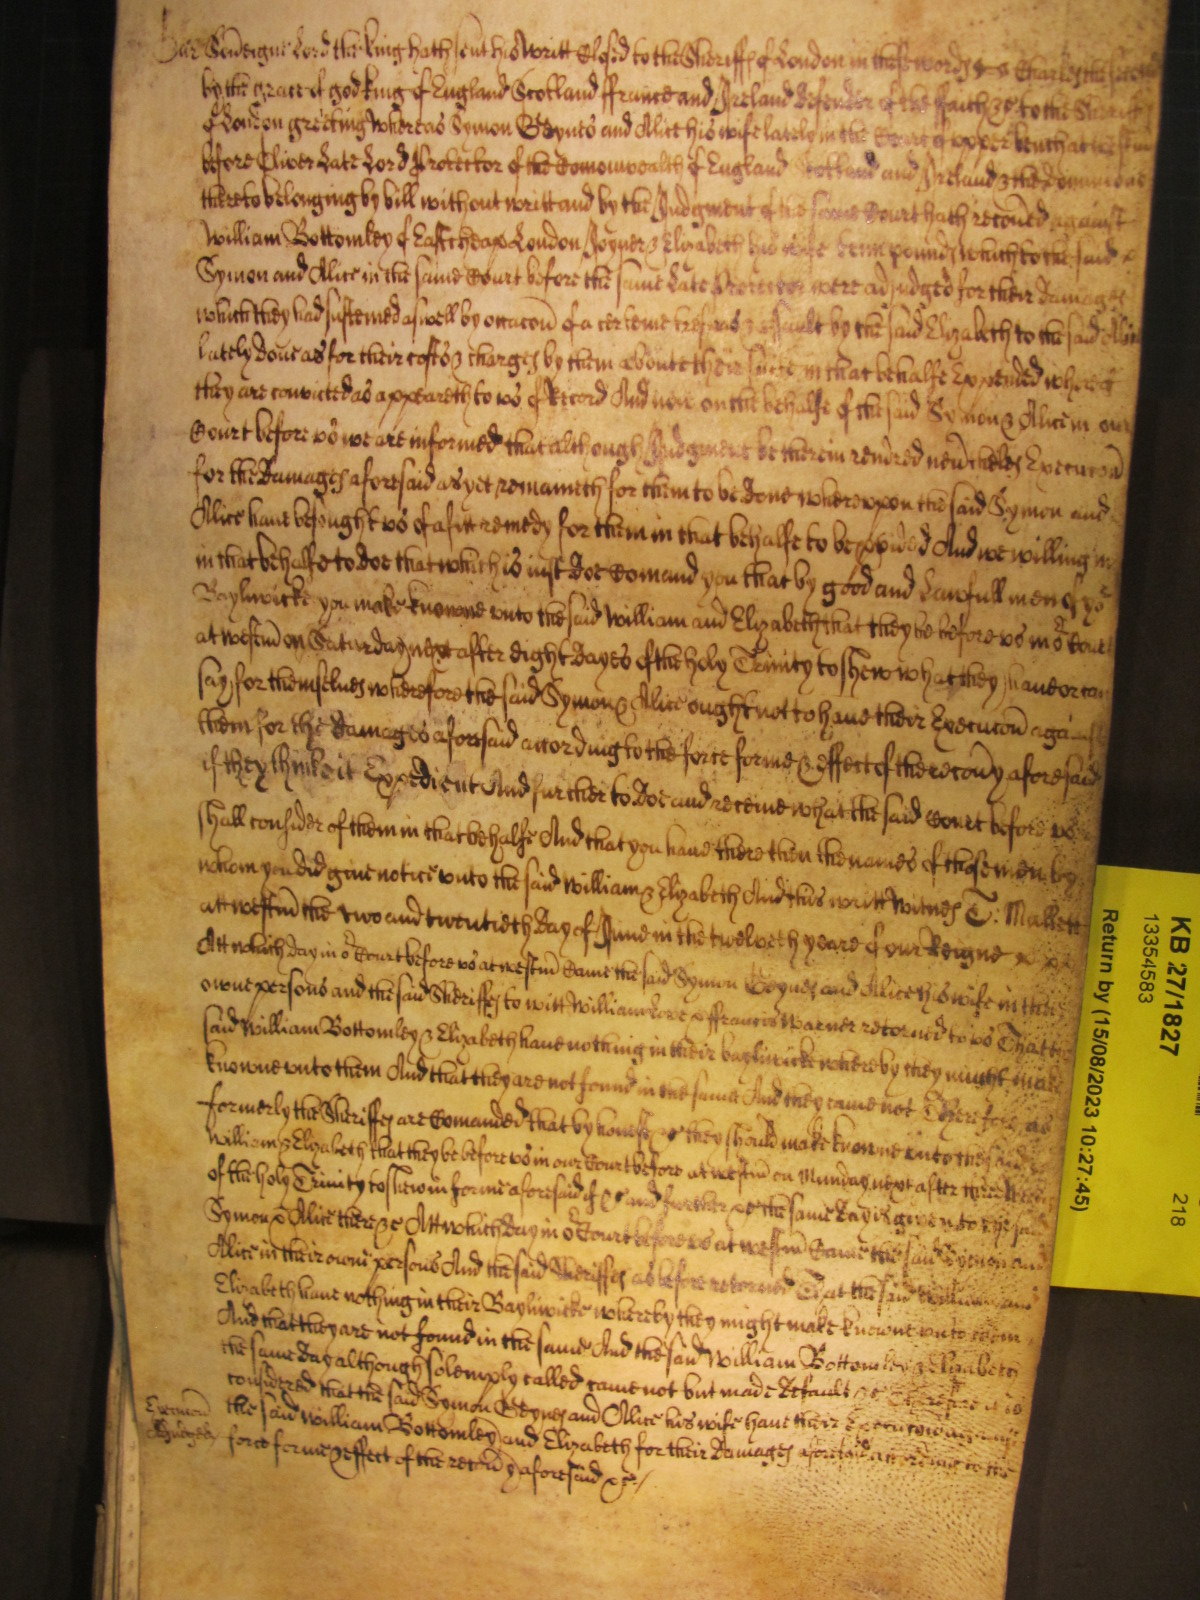 Our Soveigne Lord the King hath sent his Writt Closed to the Sheriff of London in these words ss Charles the second
by the grace of god King of England Scotland ffrance and Ireland defender of the ffaith &c to the Sheriff
of London greeting Whereas Symon Beynes and Alice his wife lately in the Court of upper bench at westm
before Oliver Late Lord Protector of the Comonwealth of England Scotland and Ireland & the Dominions
thereto belonging by bill without writt and by the Judgment of the same Court hath recoued against
William Bottomley of Eastcheap London Joyner & Elizabeth his wife tenn pounds which to the said
Symon and Alice in the same Court before the same Late Protector were adjudged for their damages
which they had susteined aswell by occacon of a certeine trespas & assault by the said Elizabeth to the said Alice
lately done as for their costs & charges by them aboute their suite in that behalfe Expended whereof
they are convicted as appeareth to us of Record And now on the behalfe of the said Symon & Alice in our
Court before us we are informed that although Judgment be therein rendred neverthelesse Execucon
for the Damages aforesaid as yet remaineth for them to be done whereupon the said Symon and
Alice haue besought us of a fitt remedy for them in that behalfe to be provided And we willing
in that behalfe to doe that which is iust doe Comand you that by good and Lawfull men of yor
Bayliwicke you make knowne unto the said William and Elizabeth that they be before us in or Court
at westm on Saturday next after Eight dayes of the holy Trinity to shew what they haue or can
say for themselues wherefore the said Symon & Alice ought not to haue their Execucon against
them for the damages aforesaid according to the force forme & effect of the recouy aforesaid
if they thinke it Expedient And further to doe and receiue what the said Court before us
shall consider of them in that behalfe And that you haue there then the names of those men by
whom you did giue notice unto the said William & Elizabeth And this writt Witnes T: Mallett
att westm the two and twentieth day of June in the twelveth yeare of our Reigne
Att which day in or Court before us at westm Came the said Symon Beynes and Alice his wife in their
owne persons and the said Sheriffes to witt William Love & ffrancis Warner retorned to us That the
said William Bottomley & Elizabeth haue nothing in their bayliwicke whereby they might make
knowne unto them And that they are not found in the same And they came not Therefore as
formerly the Sheriffes are Comanded that by honest &c they should make knowne unto the said
William & Elizabeth that they be before us in our Court before at westm on Munday next after three weekes
of the holy Trinity to shew in forme aforesaid if &c and further &c the same day is given to the said
Symon & Alice there &c Att which day in or Court before us at westm Came the said Symon and
Alice in their owne persons And the said Sheriffes as before retorned That the said William and
Elizabeth haue nothing in their Bayliwicke whereby they might make knowne unto them
And that they are not found in the same And the said William Bottomley & Elizabeth
the same day although solemply called came not but made default &c Therefore it is
considered that the said Symon Beynes and Alice his wife haue their Execucon against
the said William Bottomley and Elizabeth for their Damages aforesaid according to the
force forme & effect of the recouy aforesaid &c
Execucon
Adiudged
KB 27/1827
13354583
218
Return by (15/08/2023 10:27:45)